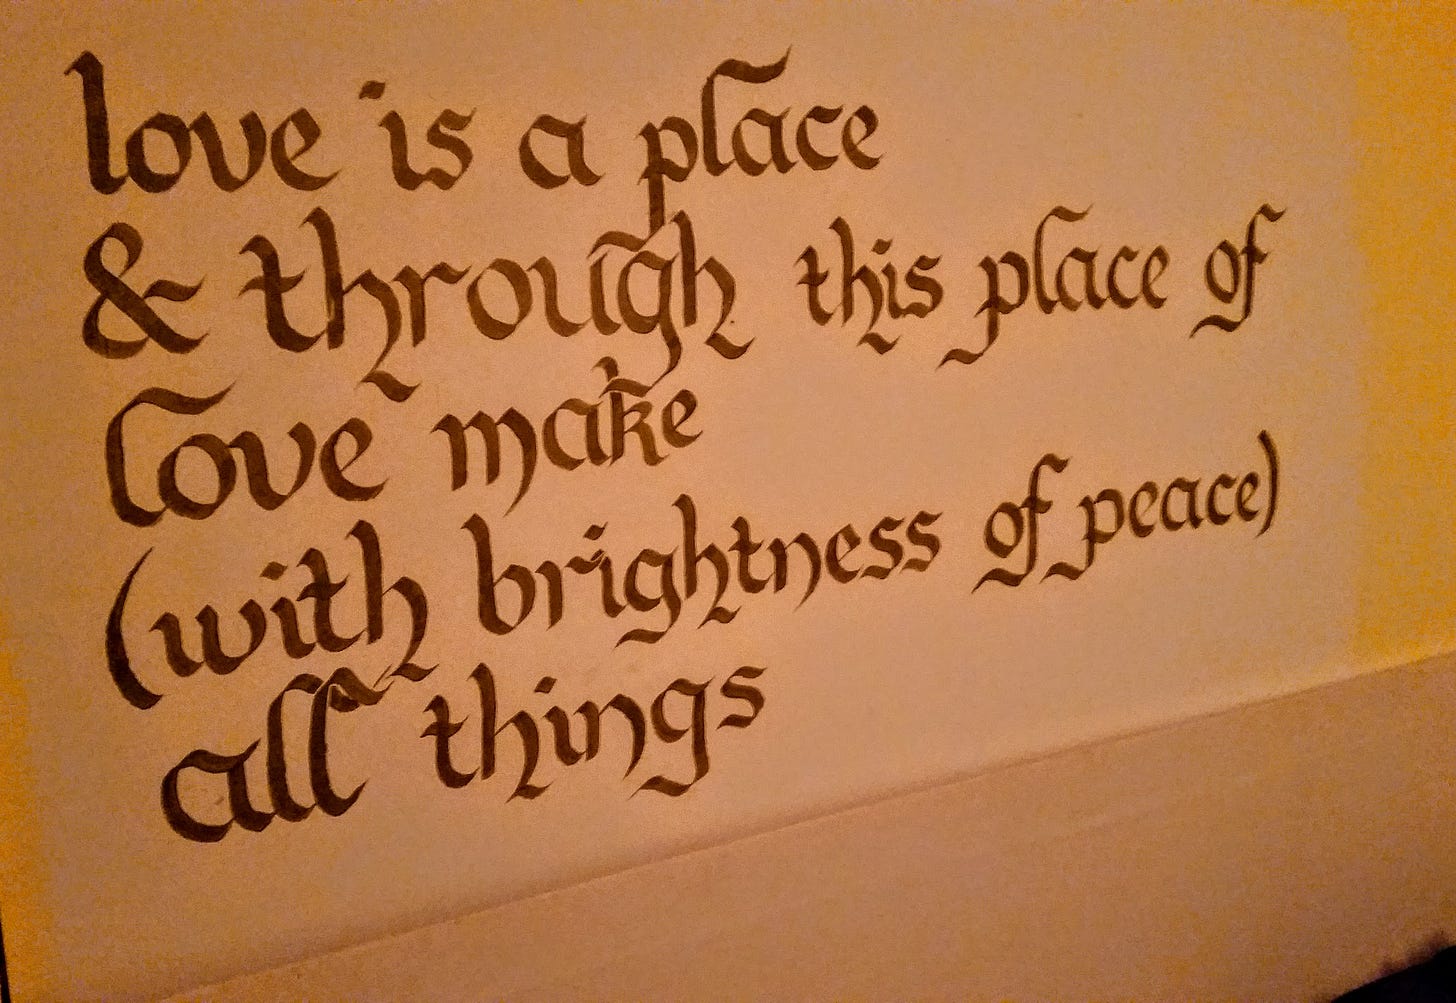 love is a place
& through this place of
love make
(with brightness of peace)
all things